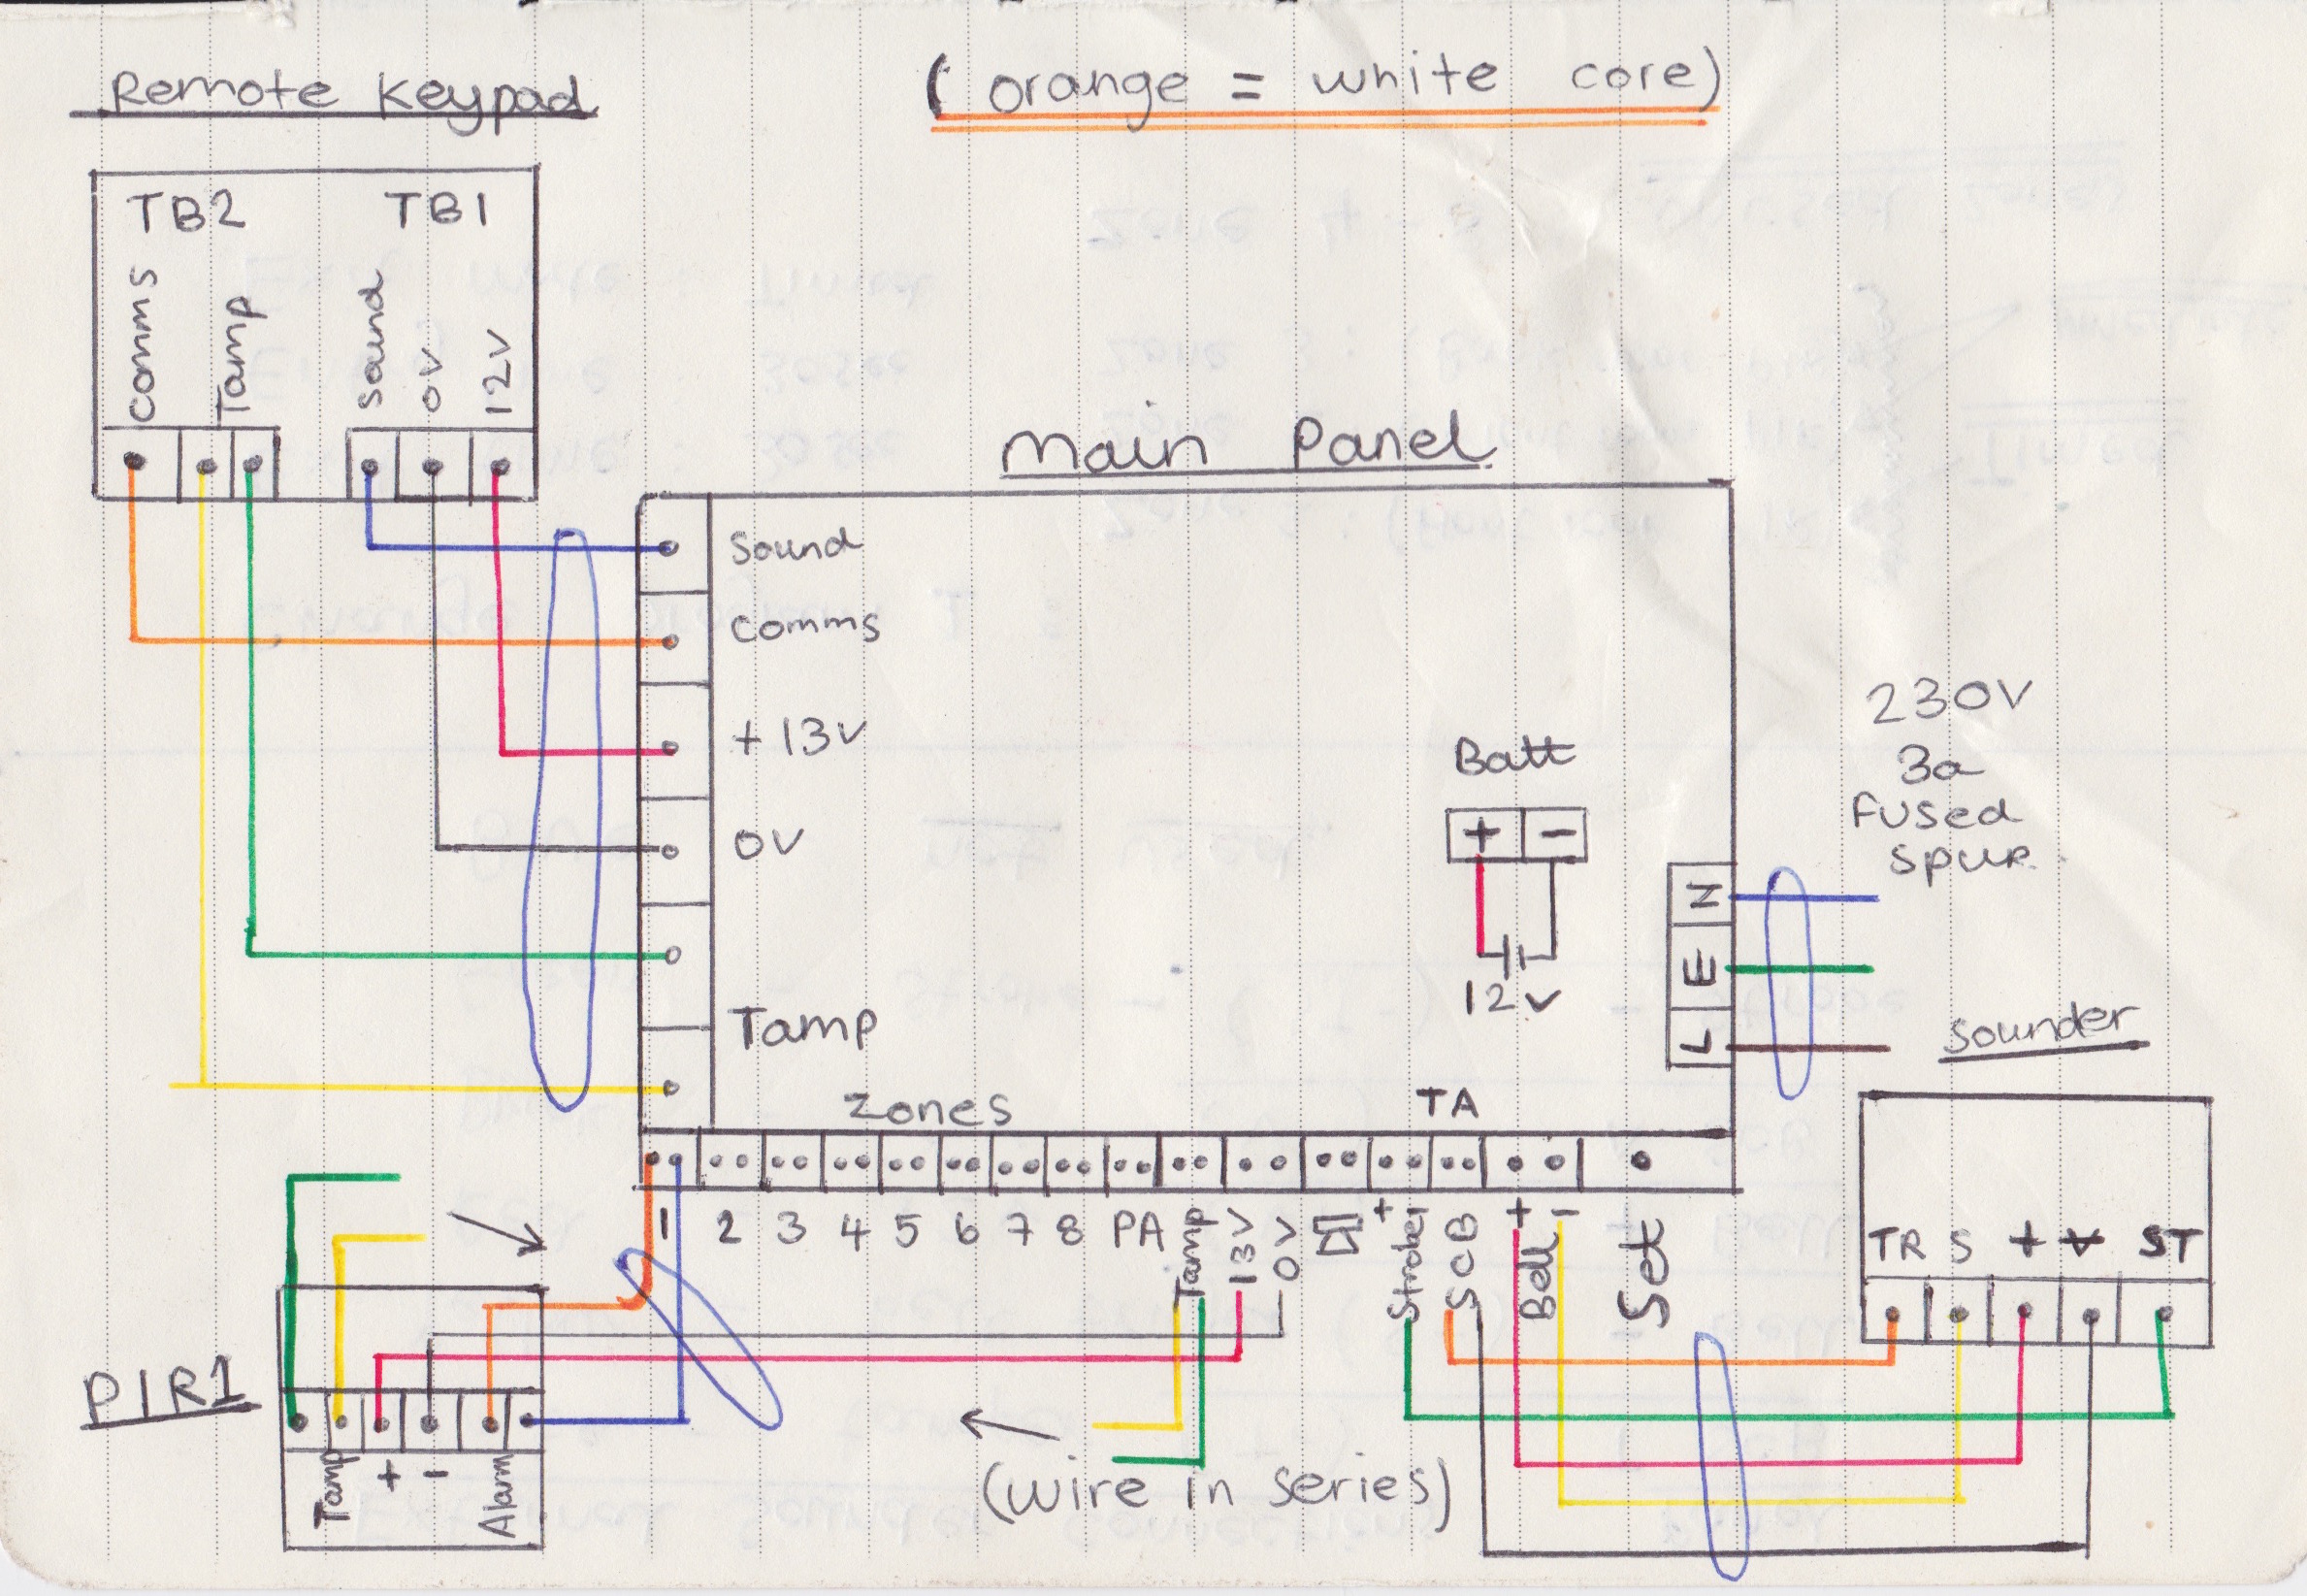 Remote Keypad
(orange = white core)
TB2 TB1
Comms
Tamp
Sound
0V
12V
Main Panel
Sound
Comms
+13V
0V
Tamp
Batt
+ -
12V
230V
3a
fused
spur
N
E
L
Sounder
TR S + ST
Zones
TA
1 2 3 4 5 6 7 8 PA Tamp 13V 0V
+
SCB
+ -
Bell
Set
PIR1
Tamp
+ -
Alarm
(wire in series)